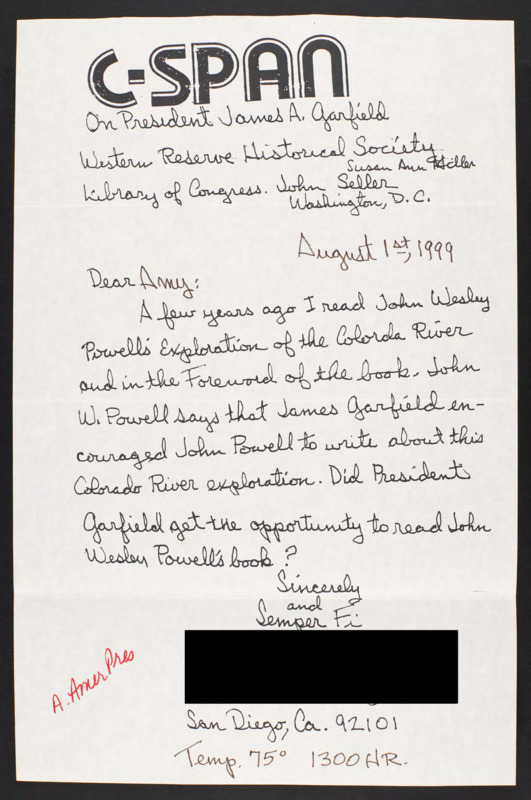 C-SPAN
On President James A. Garfield
Western Reserve Historical Society
Susan Ann Hiller
Library of Congress. John Seller
Washington, D.C.
August 1st, 1999
Dear Amy:
A few years ago I read John Wesley
Powell's Exploration of the Colorda River
and in the Foreword of the book. John
W. Powell says that James Garfield en-
couraged John Powell to write about this
Colorado River exploration. Did President
Garfield get the opportunity to read John
Wesley Powell's book?
Sincerely
and
Semper Fi
A. Amer Pres
San Diego, Ca. 92101
Temp. 75° 1300 HR.